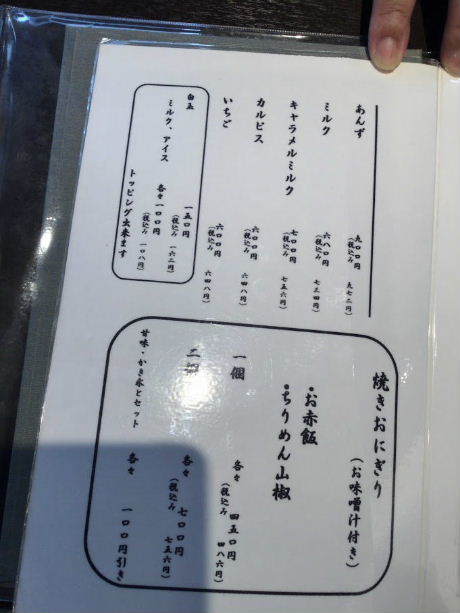 あんず 九〇〇円
(税込み 九七二円)
ミルク 六八〇円
(税込み 七三四円)
キャラメルミルク 七〇〇円
(税込み 七五六円)
カルピス 六〇〇円
(税込み 六四八円)
いちご 六〇〇円
(税込み 六四八円)
白玉 一五〇円
(税込み 一六二円)
ミルク、アイス 各々一〇〇円
(税込み 一〇八円)
トッピング出来ます
焼きおにぎり
(お味噌汁付き)
・お赤飯
・ちりめん山椒
一個 各々 四五〇円
(税込み 四八六円)
二個 各々 七〇〇円
(税込み 七五六円)
甘味・かき氷とセット 各々 一〇〇円引き